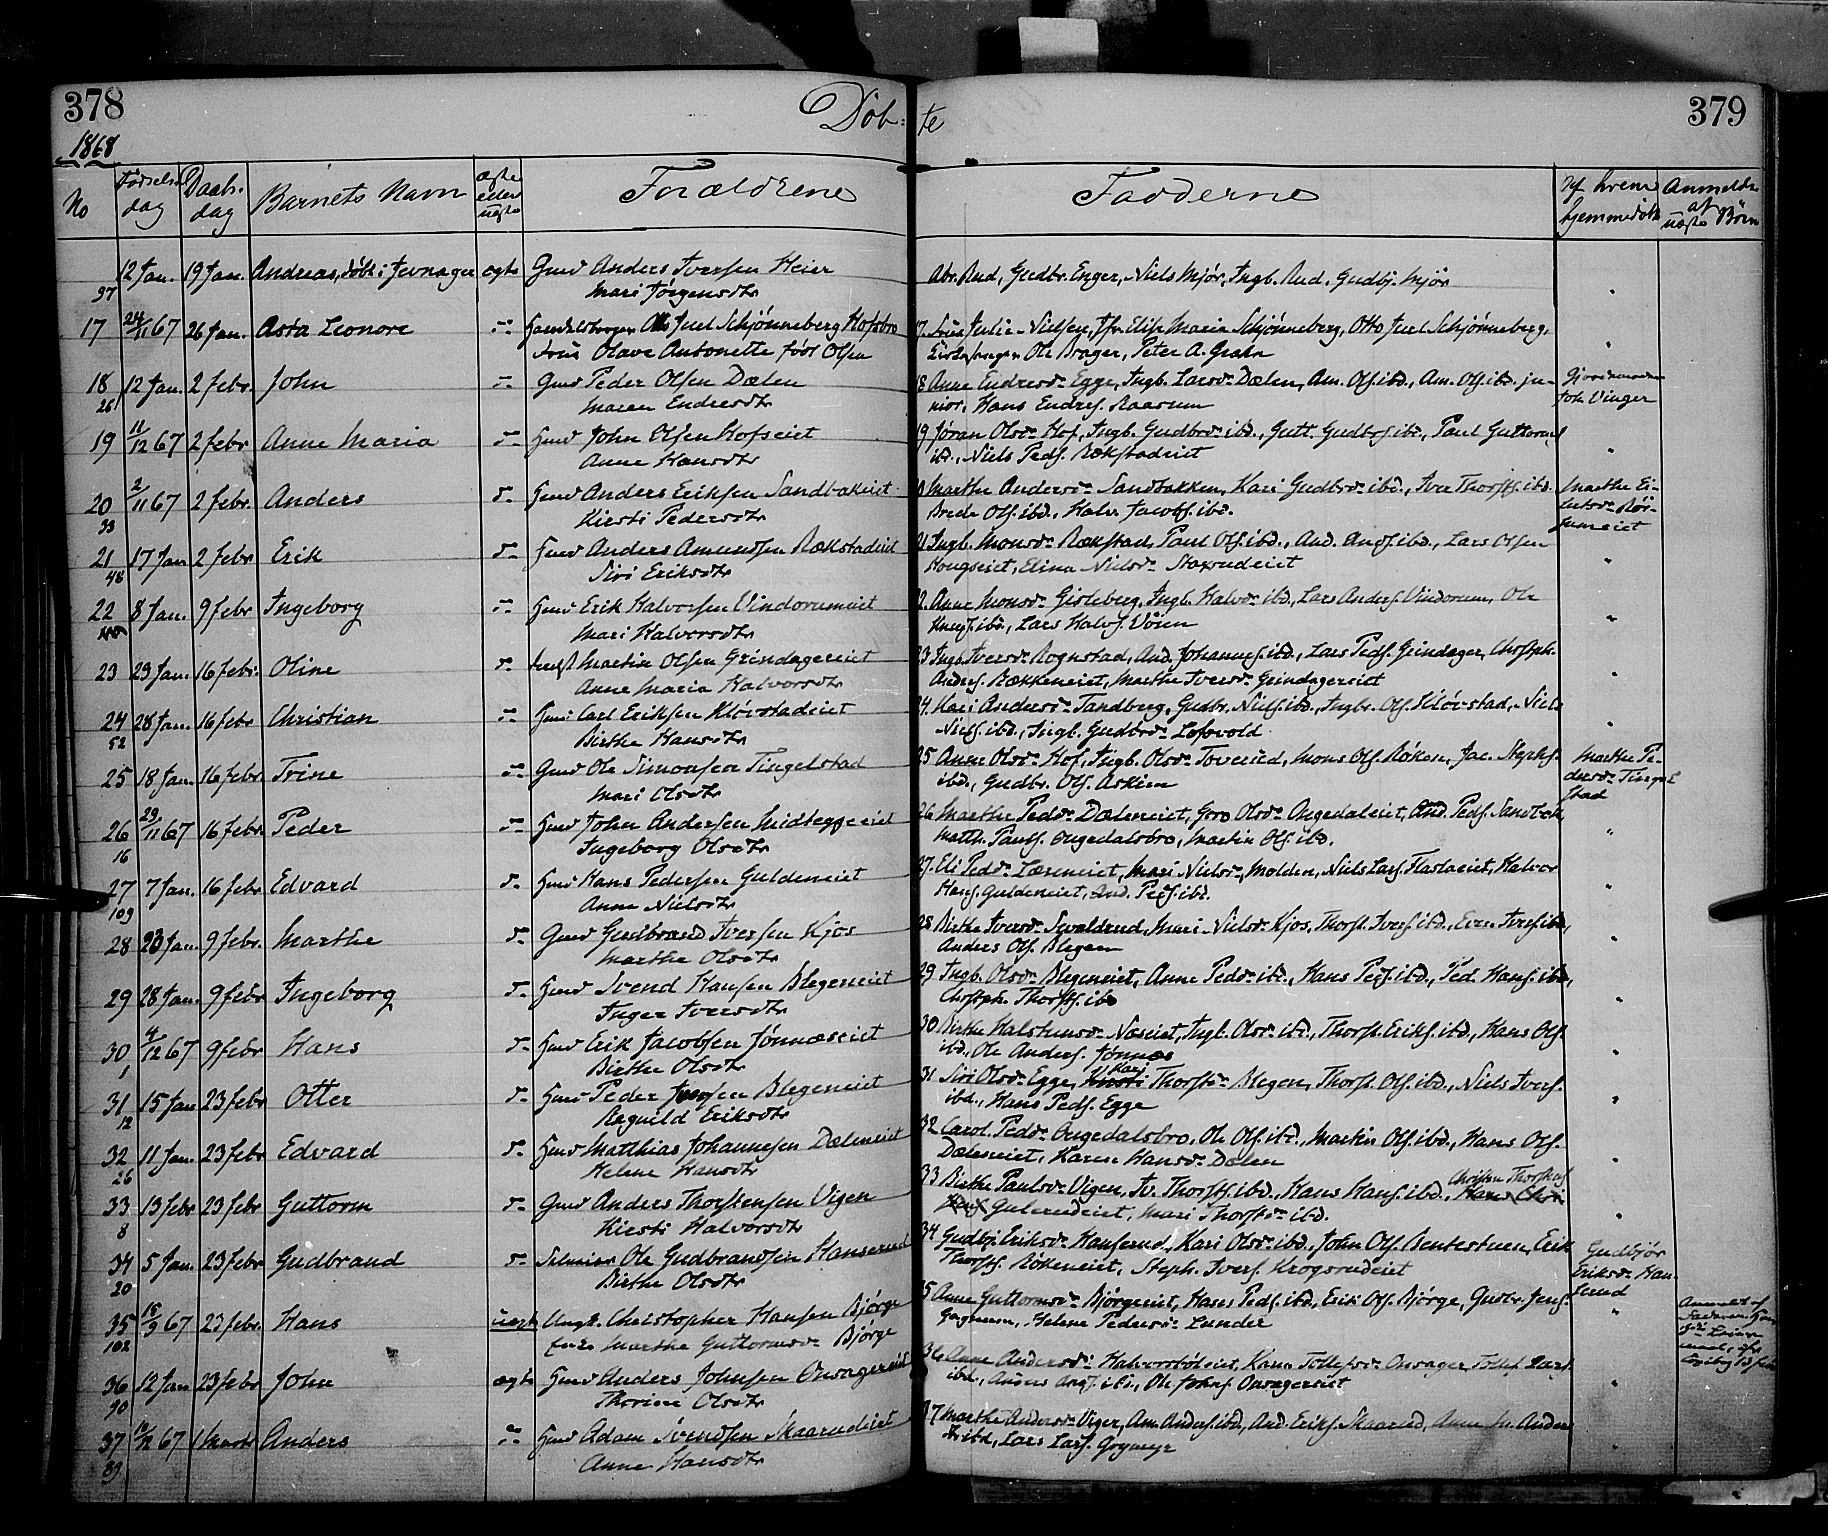 378
Døb-
te
379
1868
No
Fødsels dag
Daabs dag
Barnets Navn
ægte eller uægte
Forældrene
Fadderne
Af hvem hjemmedøbt
Anmeldte af uægte Børn
97 12 Jan. 19 Jan. Andreas, døbt i Jevnager ægte Gmd Anders Iversen Heier
Mari Jørgensdtr
Abr. Rud, Gudbr. Enger, Niels Mjør, Ingb. Rud, Gudbj. Mjør
17 24/11 67 26 Jan. Asta Leonore Handelsbroger Otto Juel Schjønneberg Hofsbro
Frue Olave Antonette født Olsen
17. Frue Julie Nielsen, Jfr. Elise Maria Schjønneberg, Otto Juel Schjønneberg,
Kirkesanger Ole Brager, Peter A. Grahn
18 26 12 Jan. 2 febr John Gmd Peder Olsen Dælen
Maren Endresdtr
18 Anne Endresdr Egge, Ingb. Larsdr Dælen, Am. Ols. ibd., Am. Ols. ibd. ju-
nior, Hans Endres. Raasum
Joh. Vinger
19 11/12 67 2 febr Anne Maria Hmd John Olsen Hofseiet
Anne Hansdtr
19 Jøran Olsdr Hof, Ingb. Gudbrdr ibd., Gutt. Gudbs. ibd., Paul Guttorms
ibd., Niels Peds. Rækstadeiet
20 33 2/11 67 2 febr. Anders Hmd Anders Eriksen Sandbakeiet
Kiersti Pedersdtr
Marthe Andersdr Sandbakken, Kari Gudbrdr ibd., Iver Thorsts. ibd.
Brede Ols. ibd., Halv. Jacobs. ibd.
Marthe Ei-
21 48 17 Jan 2 febr Erik Hmd Anders Amundsen Rækstadeiet
Siri Eriksdtr
21 Ingb. Monsdr Rækstad, Paul Ols. ibd., And. Ands. ibd., Lars Olsen
Hougseiet, Elina Nielsdr Staxrudeiet
22 8 Jan. 9 febr Ingeborg Hmd Erik Halvorsen Vindorumeiet
Mari Halvorsdtr
22. Anne Monsdr Gisleberg, Ingb. Halvdr ibd., Lars Anders. Vindorum, Ole
Knuds. ibd., Lars Halvs. Vøien
23 29 Jan. 16 febr. Oline Martin Olsen Grindagereiet
Anne Maria Halvorsdtr
23 Ingb. Iversdr Rognstad, And. Johannes. ibd., Lars Peds. Grindager, Chrstph.
Anders. Rækkeneiet, Marthe Iversdr Grindagereiet
24 52 28 Jan. 16 febr Christian Hmd Carl Eriksen Kløvstadeiet
Birthe Hansdtr
24. Kari Andersdr Tandberg, Gudbr. Niels. ibd., Ingbr. Ols. Kløvstad, Niels
Niels. ibd., Ingb. Gudbrdr Lofsvold
25 18 Jan. 16 febr. Trine Gmd Ole Simonsen Tingelstad
Mari Olsdtr
25 Anne Olsdr Hof, Ingb. Olsdr Toverud, Mons Ols. Røken, Jac. Stephs.
ibd., Gudbr. Ols. Askim
Marthe Pe-
dersdr Tingel
stad
26 16 29/11 67 16 febr. Peder Hmd John Andersen Midteggeeiet
Ingeborg Olsdtr
26 Marthe Pedsdr Dæleneiet, Goro Olsdr Ongedaleiet, And. Peds. Sandbak,
Matth. Pauls. Ongedalsbro, Martin Ols. ibd.
27 109 7 Jan. 16 febr Edvard Hmd Hans Pedersen Guldeneiet
Anne Nielsdtr
27. Eli Pedsdr Læreneiet, Mari Nielsdr Molden, Niels Lars. Hasleeiet, Halvor
Hans. Guldeneiet, And. Peds. ibd.
28 23 Jan. 9 febr. Marthe Gmd Gudbrand Iversen Kjos
Marthe Olsdtr
28 Birthe Iversdr Sevaldrud, Mari Nielsdr Kjos, Thorst. Ivers. ibd., Even Ivers. ibd.,
Anders Ols. Blegen
29 28 Jan. 9 febr Ingeborg Hmd Svend Hansen Blegeneiet
Inger Iversdtr
29 Ingb. Olsdr Blegeneiet, Anne Pedsdr ibd., Hans Peds. ibd., Ped. Hans. ibd.,
Chrstph. Thorsts. ibd
30 4/12 67 9 febr Hans Hmd Erik Jacobsen Jønnæseiet
Birthe Olsdtr
30 Birthe Halstensdr Næseiet, Ingb. Olsdr ibd., Thorst. Eriks. ibd., Hans Ols.
ibd., Ole Anders. Jønnæs
31 12 15 Jan 23 febr Otter Hmd Peder Jensen Blegeneiet
Ragnild Eriksdtr
31 Siri Olsdr Egge, Kari Thorstsdr Blegen, Thorst. Ols. ibd., Niels Ivers.
ibd., Hans Peds. Egge
32 26 11 Jan. 23 febr Edvard Hmd Matthias Johannesen Dæleneiet
Helene Hansdtr
32 Carol. Pedsdr Ongedalsbro, Ole Ols. ibd., Martin Ols. ibd., Hans Ols.
Dæleneiet, Karen Hansdr Dælen
33 8 13 febr 23 febr Guttorm Gmd Anders Thorstensen Vigen
Kiersti Halvorsdtr
33 Birthe Paulsdr Vigen, Iv. Thorsts. ibd., Hans Hans. ibd., Christen Thorstens.
Gulerudeiet, Mari Thorstsdr ibd.
34 20 5 Jan. 23 febr Gudbrand Selveier Ole Gudbrandsen Hanserud
Birthe Olsdtr
34 Gudbjør Eriksdr Hanserud, Kari Olsdr ibd., John Ols. Bentestuen, Erik
Thorsts. Røkeneiet, Steph. Ivers. Krogsrudeiet
Gudbjør
Eriksdr Han-
serud
35 102 18/3 67 23 febr. Hans uægte Ungk. Christopher Hansen Bjørge
Marthe Guttormsdr Bjørge
35 Anne Guttormsdr Bjørgeeiet, Hans Peds. ibd., Erik Ols. Bjørge, Gudbr. Jens.
Gagnum, Helene Pedersdr Lunder
36 90 12 Jan 23 febr John ægte Hmd Anders Johnsen Onsagereiet
Thorine Olsdtr
36 Anne Andersdr Halvorsbøleiet, Karen Tollefsdr Onsager, Tollef Lars.
ibd., Anders Ands. ibd., Ole Johns. Onsagereiet
37 89 12/12 67 1 Marts Anders Hmd Adam Svendsen Skaarudeiet
Anne Hansdtr
37 Marthe Andersdr Viger, Am. Anders. ibd., And. Eriks. Skaarud, Anne M. Anders
ibd., Lars Lars. Grymyr